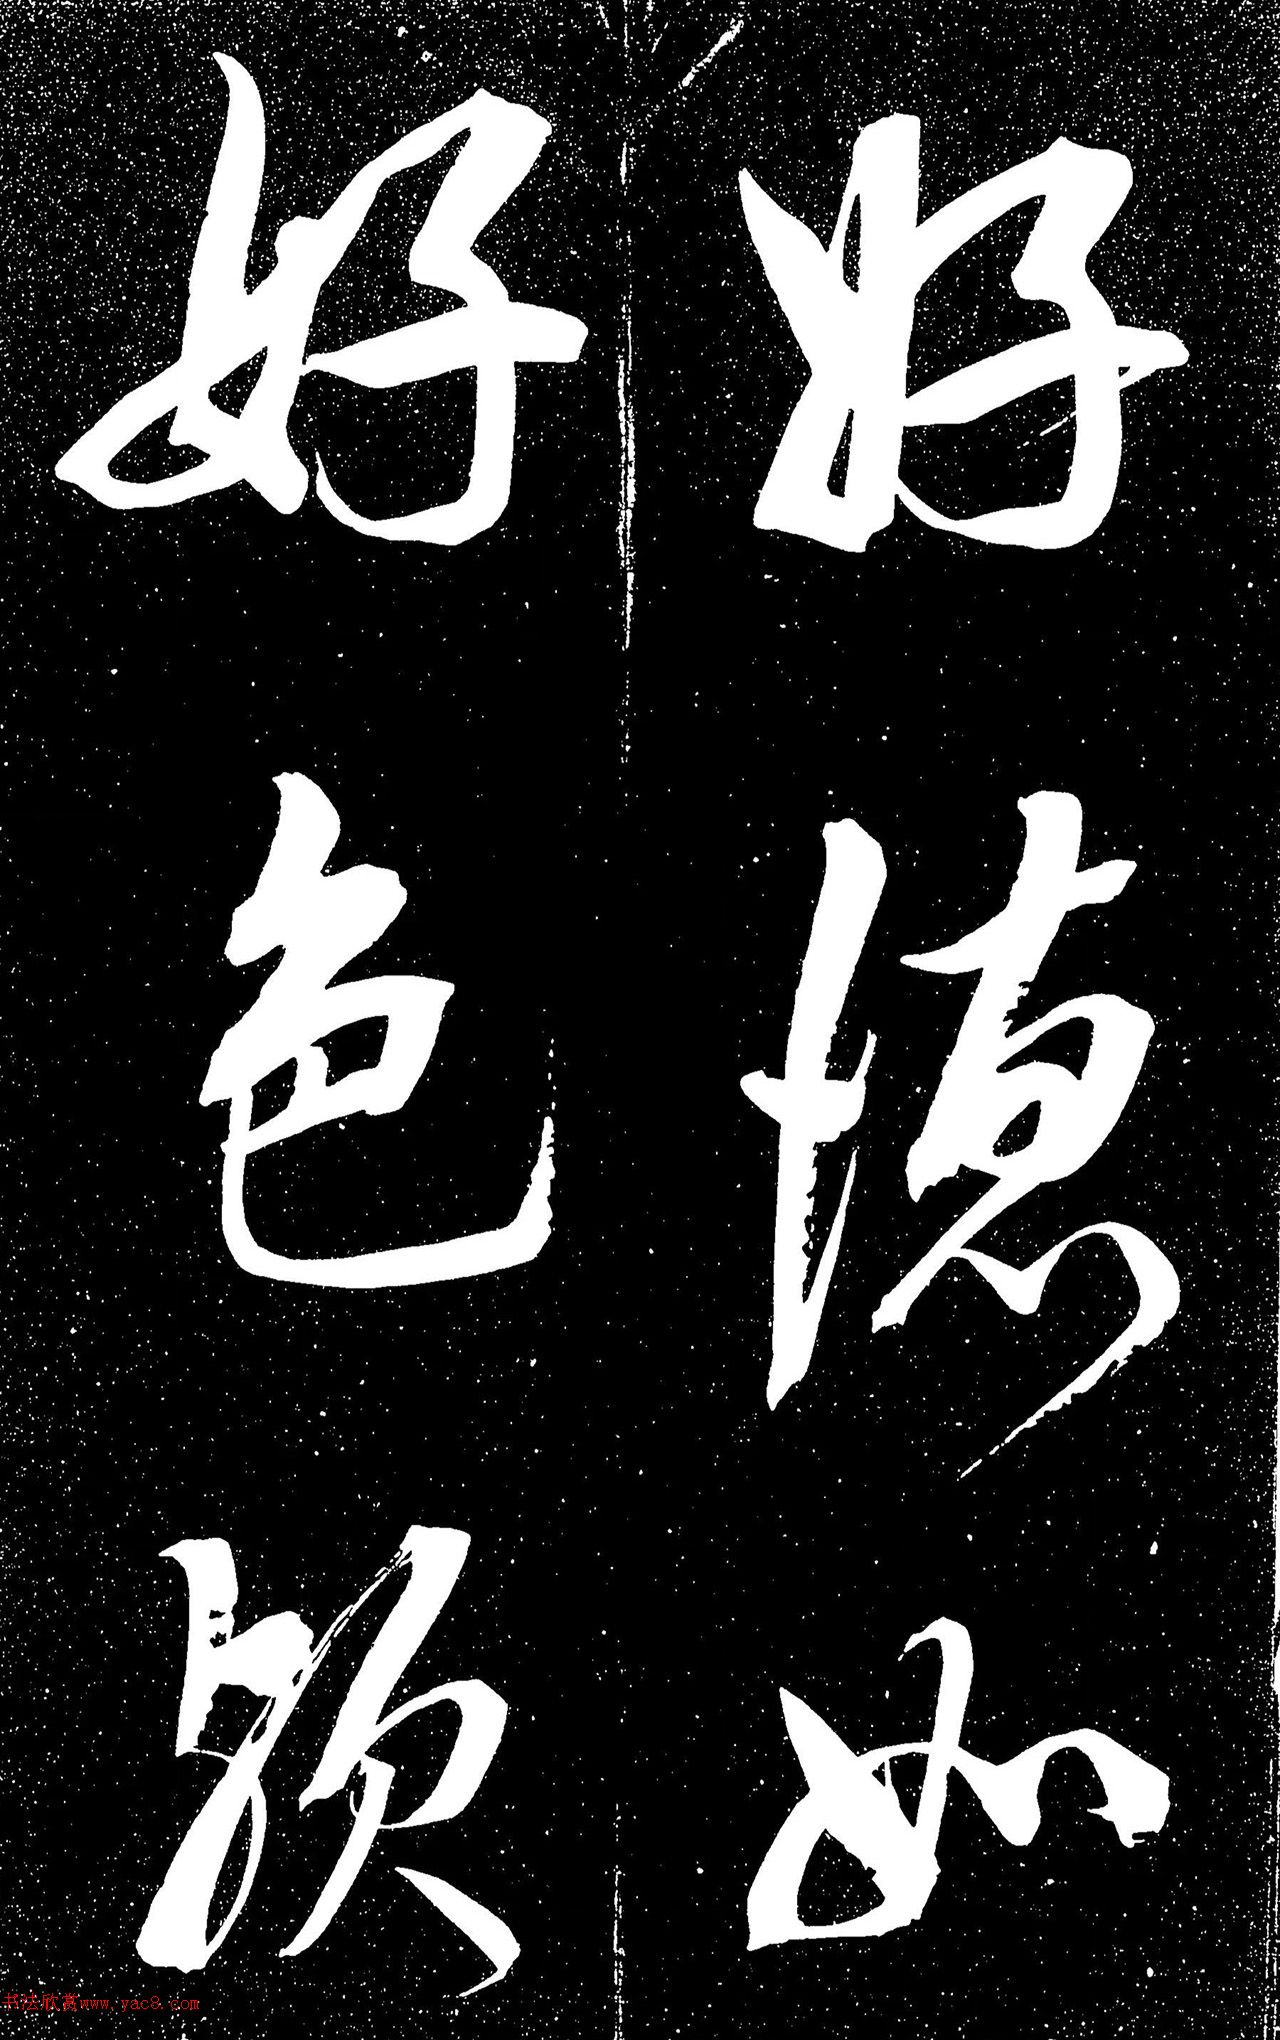 好德如
好色頻
书法欣赏www.yac8.com